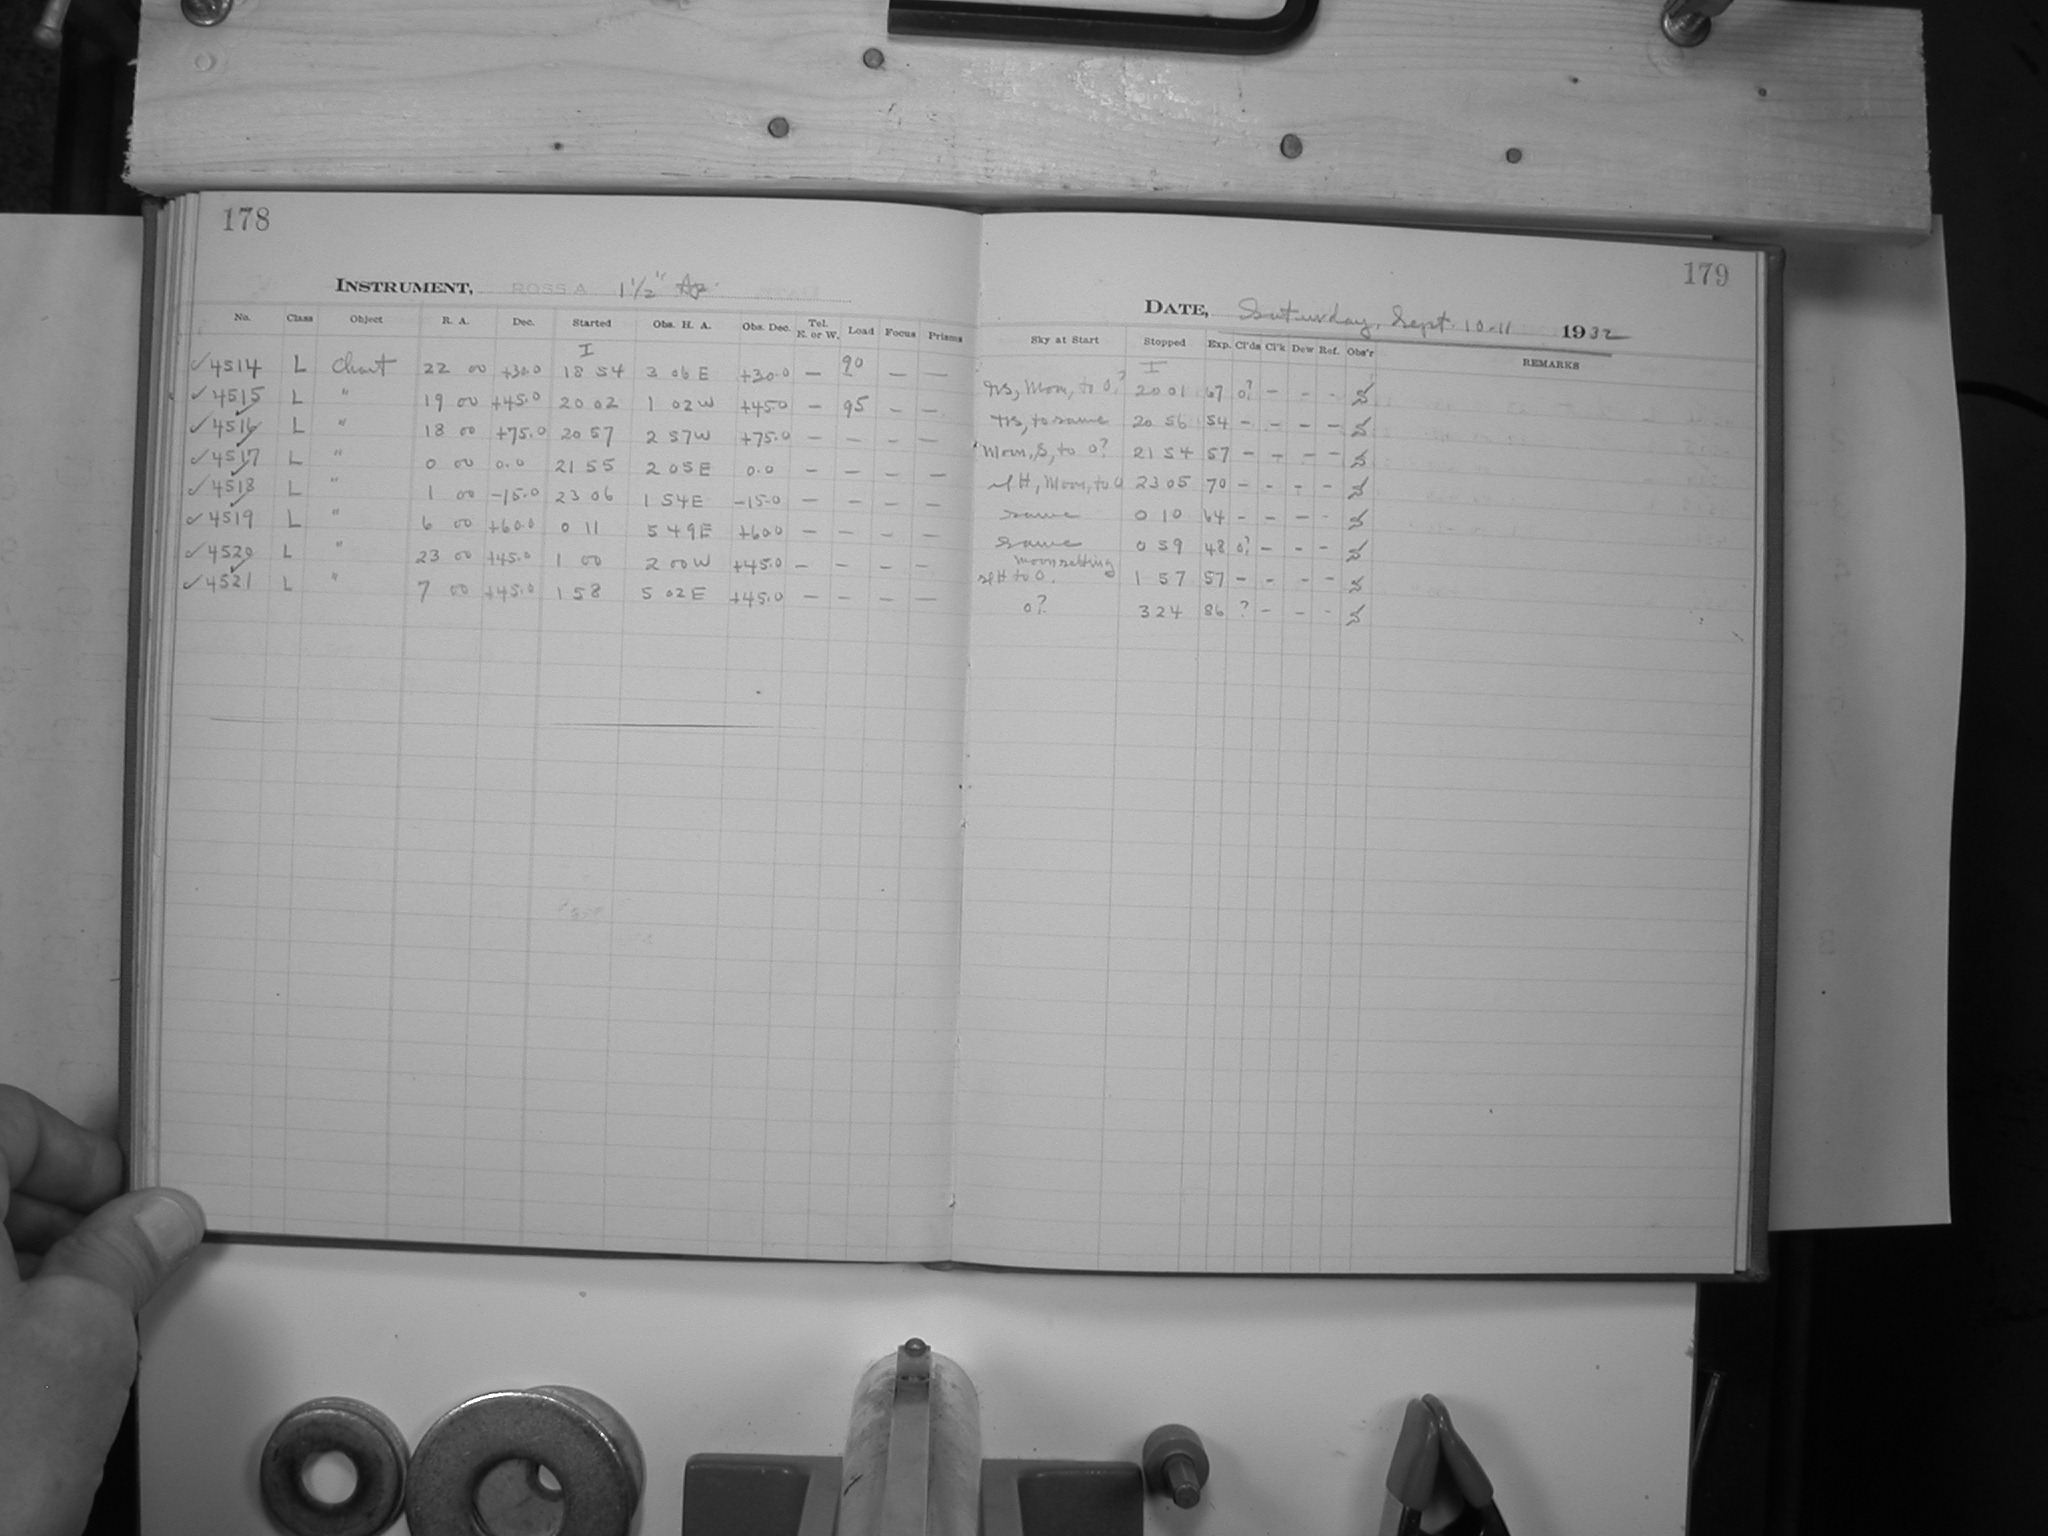 178
INSTRUMENT, ROSS A 1½" Ap.
No. Class Object R. A. Dec. Started Obs. H. A. Obs. Dec. Tel. E. or W. Load Focus Prisms
I
✓4514 L Chart 22 00 +30.0 18 54 3 06 E +30.0 — 90 — —
✓4515 L " 19 00 +45.0 20 02 1 02 W +45.0 — 95 — —
✓4516 L " 18 00 +75.0 20 57 2 57 W +75.0 — — — —
✓4517 L " 0 00 0.0 21 55 2 05 E 0.0 — — — —
✓4518 L " 1 00 -15.0 23 06 1 54 E -15.0 — — — —
✓4519 L " 6 00 +60.0 0 11 5 49 E +60.0 — — — —
✓4520 L " 23 00 +45.0 1 00 2 00 W +45.0 — — — —
✓4521 L " 7 00 +45.0 1 58 5 02 E +45.0 — — — —
179
DATE, Saturday, Sept. 10-11 1932
Sky at Start Stopped Exp. Cl'ds Cl'k Dew Ref. Obs'r REMARKS
I
Moon, to 0? 20 01 67 0? — — -
to same 20 56 54 — — — —
Moon, S, to 0? 21 54 57 — — — —
H, Moon, to 0 23 05 70 — — - -
same 0 10 64 - — — -
same 0 59 48 0? — - —
moon setting
H to 0. 1 57 57 — - - -
0? 3 24 86 ? - — -